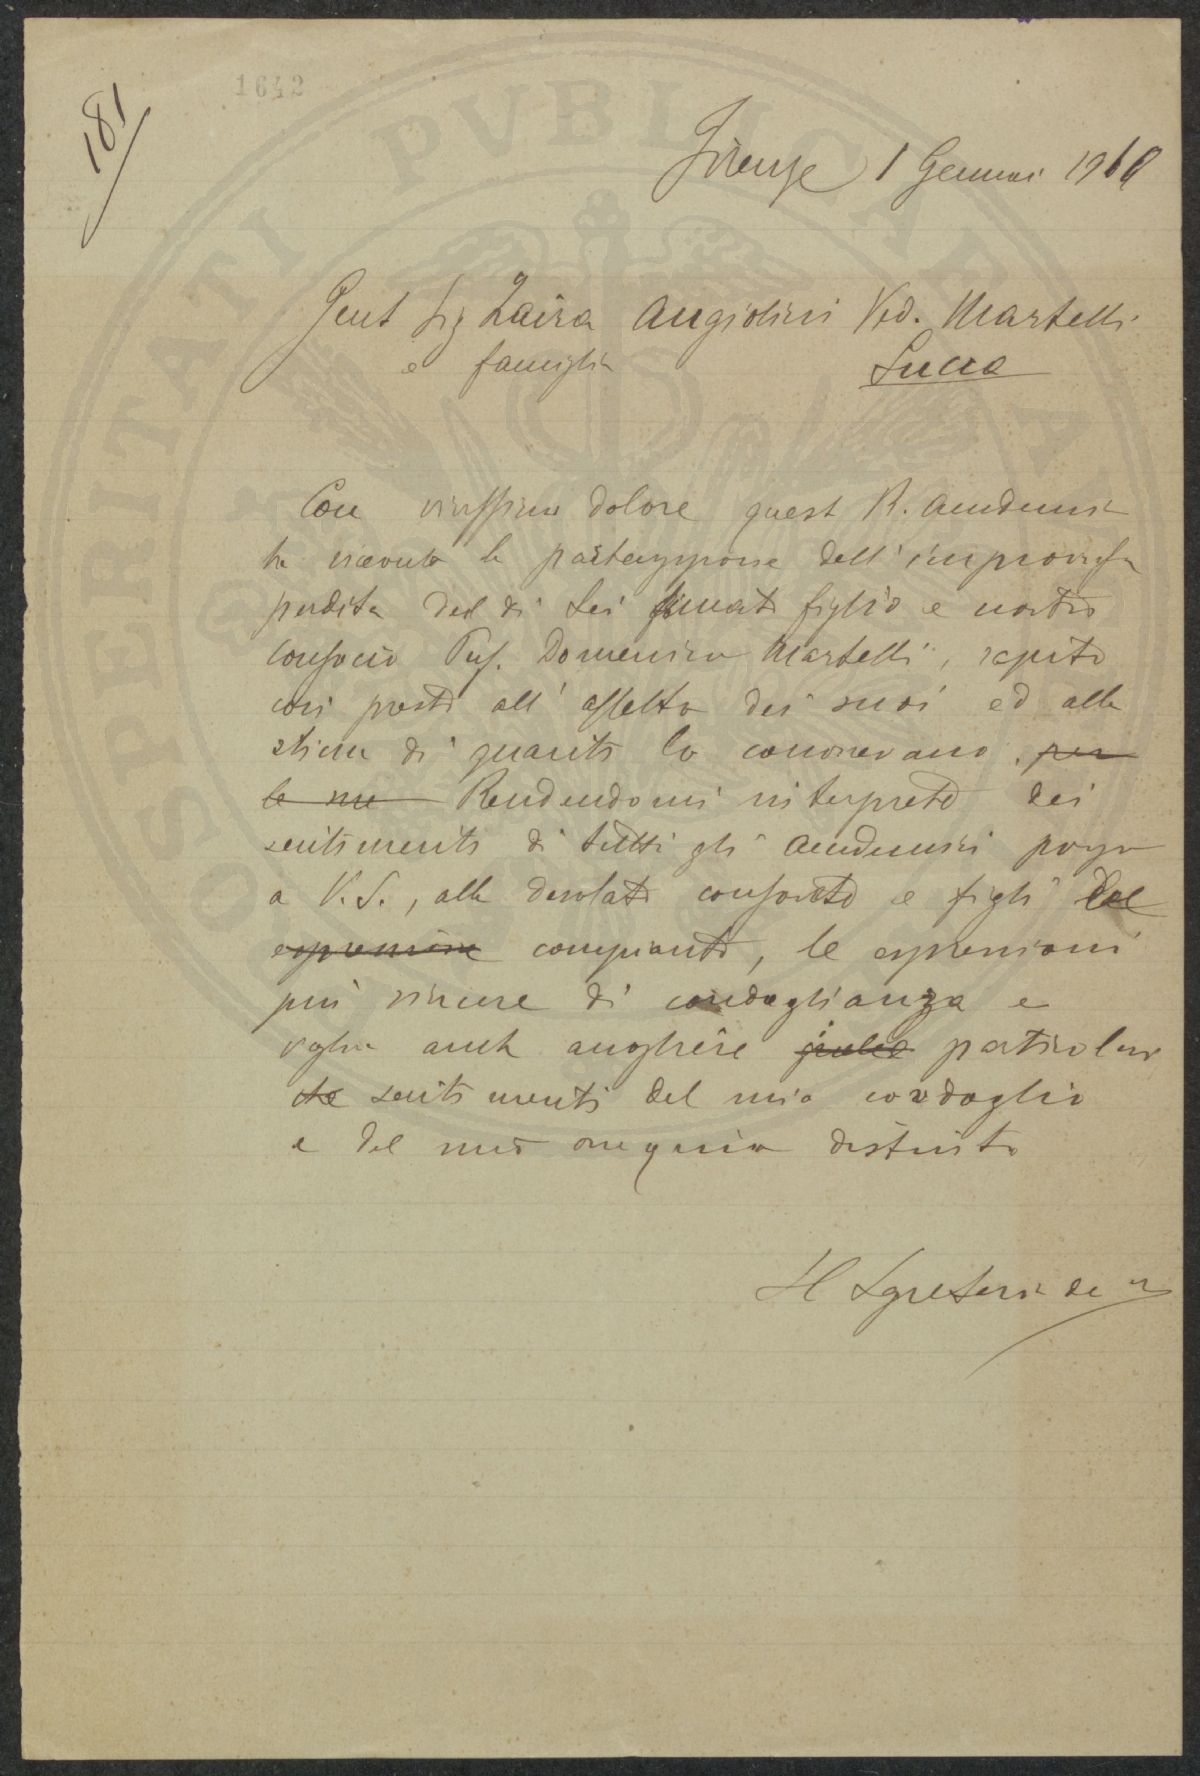 1642
181
Firenze 1 Gennai
Gent Sig Zaira Angiolini Ved. Martelli
e famiglia Lucca
Con vivissimo dolore quest R. Accademia
ha ricevuto la partecipazione dell'improvvisa
perdita del di Lei figlio e nostro
consocio Prof. Domenico Martelli, rapito
così presto all'affetto dei suoi ed alla
stima di quanti lo conoscevano. per
le me Rendendomi interprete dei
sentimenti di tutti gli Accademici porgo
a V.S., alla desolata consorte e figli del
esprimere compianto, le espressioni
più sincere di condoglianza e
voglia anch particolar
sentimenti del mio cordoglio
e del mio ossequio distinto
Il Segretario
PVBLICAE
PROSPERITATI